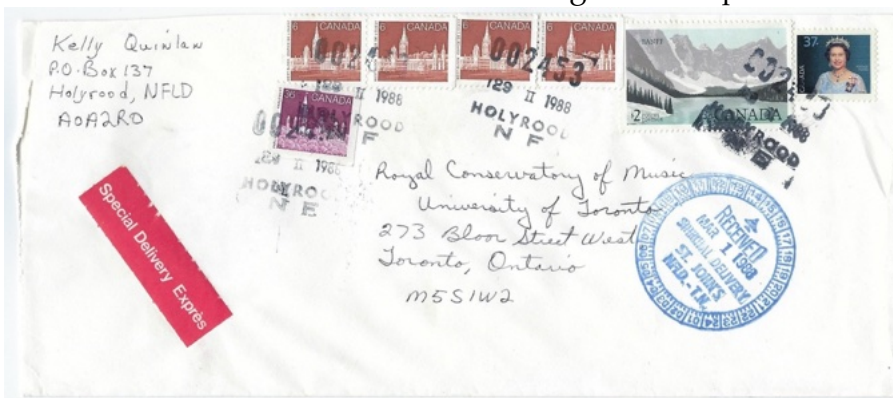 Kelly Quinlan
P.O. Box 137
Holyrood, NFLD
A0A2R0
6 CANADA
6 CANADA
6 CANADA
6 CANADA
BANFF
$2 CANADA
37
CANADA
36 CANADA
002453
29 II 1988
HOLYROOD
NF
29 II 1988
HOLYROOD
NF
29 II 1988
HOLYROOD
Special Delivery Exprès
Royal Conservatory of Music
University of Toronto
273 Bloor Street West
Toronto, Ontario
M5S1W2
4
RECEIVED
MAR 1 1988
SPECIAL DELIVERY
ST. JOHN'S
NFLD.-T.N.